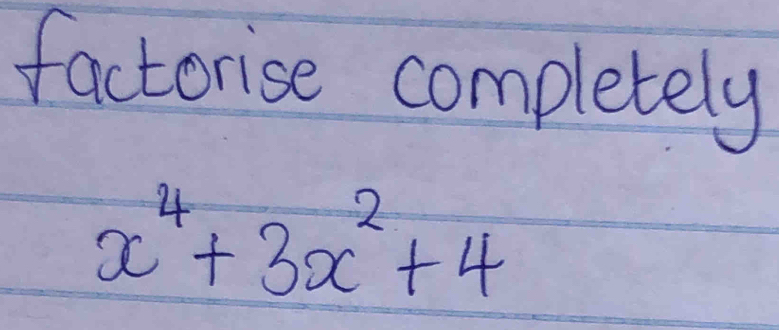 factorise completely
x⁴ + 3x² + 4